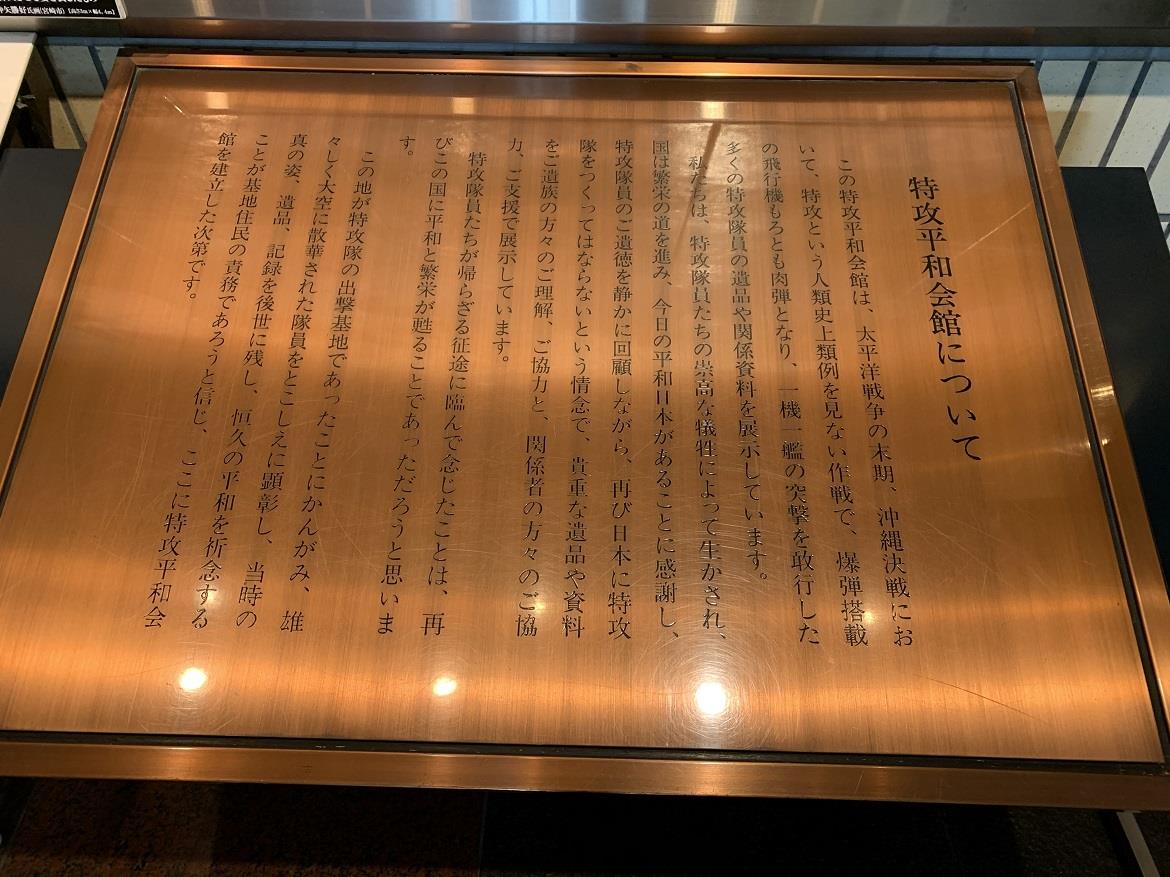 特攻平和会館について
この特攻平和会館は、太平洋戦争の末期、沖縄決戦にお
いて、特攻という人類史上類例を見ない作戦で、爆弾搭載
の飛行機もろとも肉弾となり、一機一艦の突撃を敢行した
多くの特攻隊員の遺品や関係資料を展示しています。
私たちは、特攻隊員たちの崇高な犠牲によって生かされ、
国は繁栄の道を進み、今日の平和日本があることに感謝し、
特攻隊員のご遺徳を静かに回顧しながら、再び日本に特攻
隊をつくってはならないという情念で、貴重な遺品や資料
をご遺族の方々のご理解、ご協力と、関係者の方々のご協
力、ご支援で展示しています。
特攻隊員たちが帰らざる征途に臨んで念じたことは、再
びこの国に平和と繁栄が甦ることであっただろうと思いま
す。
この地が特攻隊の出撃基地であったことにかんがみ、雄
々しく大空に散華された隊員をとこしえに顕彰し、当時の
真の姿、遺品、記録を後世に残し、恒久の平和を祈念する
ことが基地住民の責務であろうと信じ、ここに特攻平和会
館を建立した次第です。